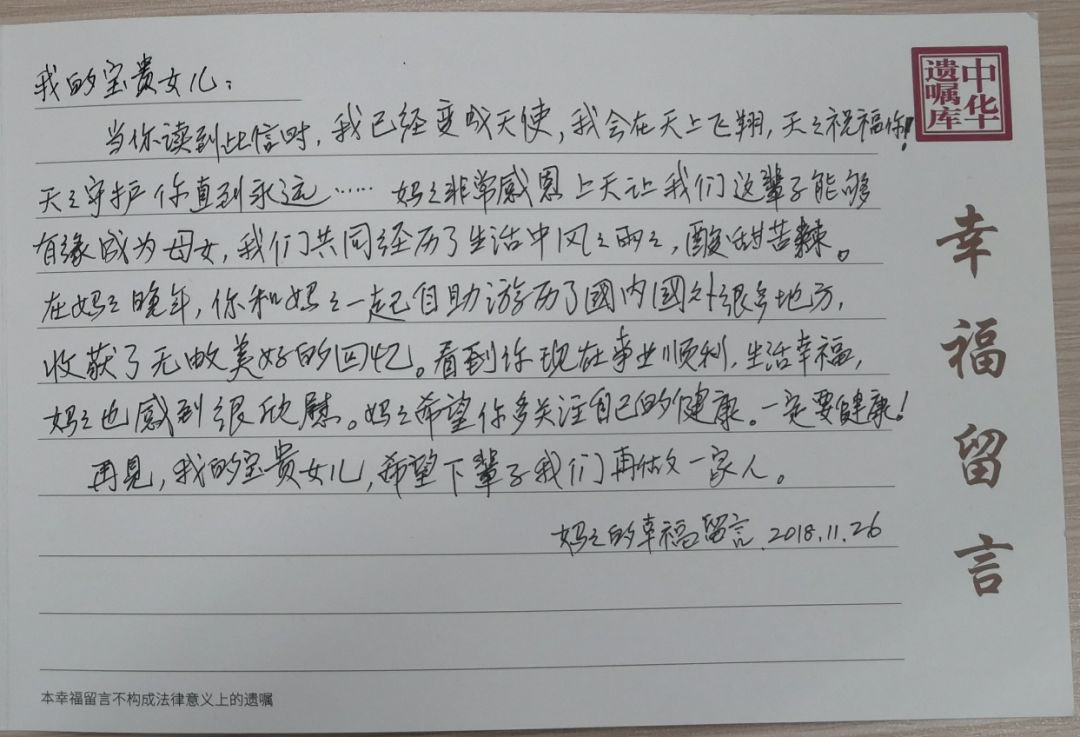 我的宝贵女儿：
当你读到此信时，我已经变成天使，我会在天上飞翔，天天祝福你！
天天守护你直到永远…… 妈妈非常感恩上天让我们这辈子能够
有缘成为母女，我们共同经历了生活中风风雨雨，酸甜苦辣。
在妈妈晚年，你和妈妈一起自助游历了國内國外很多地方，
收获了无数美好的回忆。看到你现在事业顺利，生活幸福，
妈妈也感到很欣慰。妈妈希望你多关注自己的健康。一定要健康！
再見，我的宝贵女儿，希望下辈子我们再做一家人。
妈妈的幸福留言 2018.11.26
中华
遗嘱库
幸福留言
本幸福留言不构成法律意义上的遗嘱